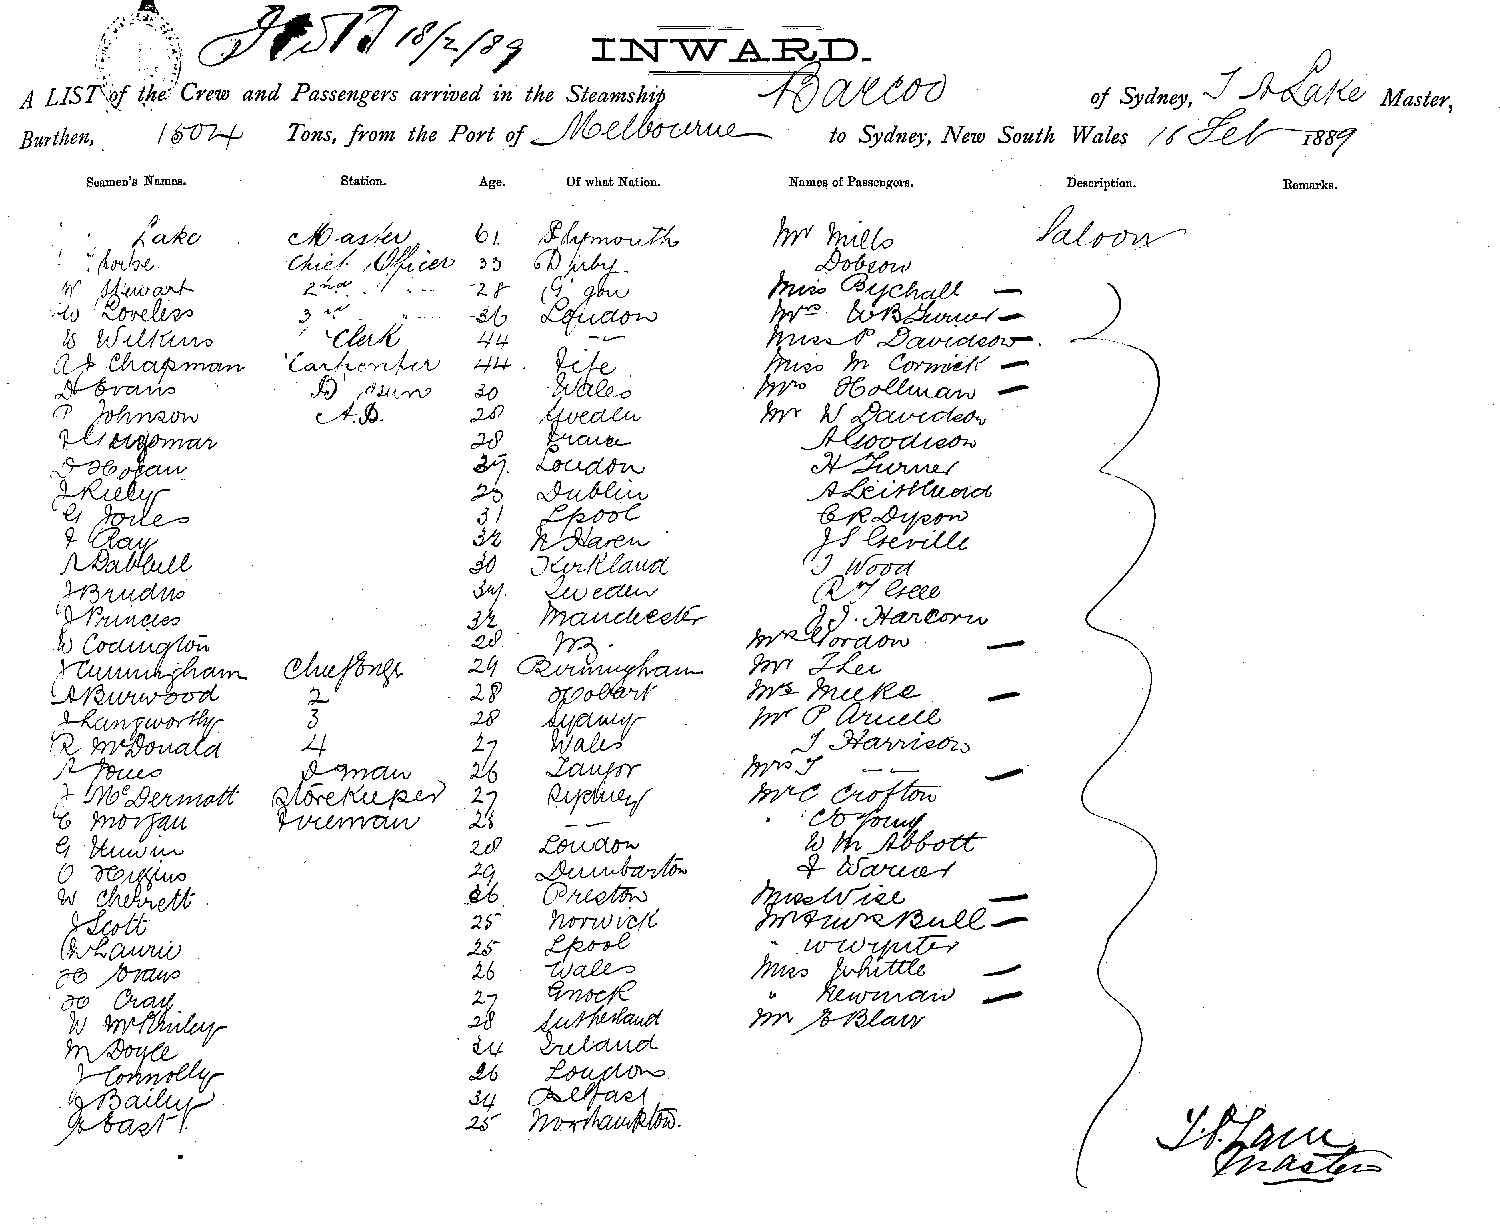 18/2/89
INWARD.
A LIST of the Crew and Passengers arrived in the Steamship Barcoo of Sydney, T A Lake Master,
Burthen, 1504 Tons, from the Port of Melbourne to Sydney, New South Wales 16 Feb 1889
Seamen's Names. Station. Age. Of what Nation. Names of Passengers. Description. Remarks.
Lake Master 61 Plymouth Mr Mills Saloon
Chief Officer 33 Derby Dobson
W Stewart 2nd " 28 Miss Bychall —
W Loveless 3rd " 36 London Mrs W B Turner —
W Wilkins Clerk 44 — Miss P Davidson —
A J Chapman Carpenter 44 Fife Miss McCormick —
D Evans 30 Wales Mrs Hollman —
P Johnson A.B. 28 Sweden Mr W Davidson
28 France A Goodison
Hogan 37 London H Turner
J Riely 23 Dublin A Leithhead
G Jones 31 Lpool C R Dyson
J Ray 32 W Haven J S Greville
30 Kirkland J Wood
J Brudns 34 Sweden R T
J Princess 32 Manchester J J. Harcorn
W Codington 28 Mrs Gordon —
J Cunningham Chief Engr 29 Birmingham Mr
A Burwood 2 28 Hobart Mrs Meeke —
J Langworthy 3 28 Sydney Mr P Arnell
R McDonald 4 27 Wales J Harrison
A Jones D man 26 Mrs J — —
J McDermott Storekeeper 27 Sydney Mr C Crofton
C Morgan Fireman 28 — " C O Young
G Unwin 28 London W M Abbott
O Higgins 29 Dumbarton J Warner
W Cherrett 26 Preston Miss Wise —
J Scott 25 Norwick Mr & Mrs Bull —
W Laurie 25 Lpool " W Wynter
H Evans 26 Wales Miss Whittle —
H Cray 27 Gnock " Newman —
W McKinley 28 Sutherland Mr E Blair
M Doyle 24 Ireland
J Connolly 26 London
J Bailey 34 Belfast
J East 25 Northampton.
Master